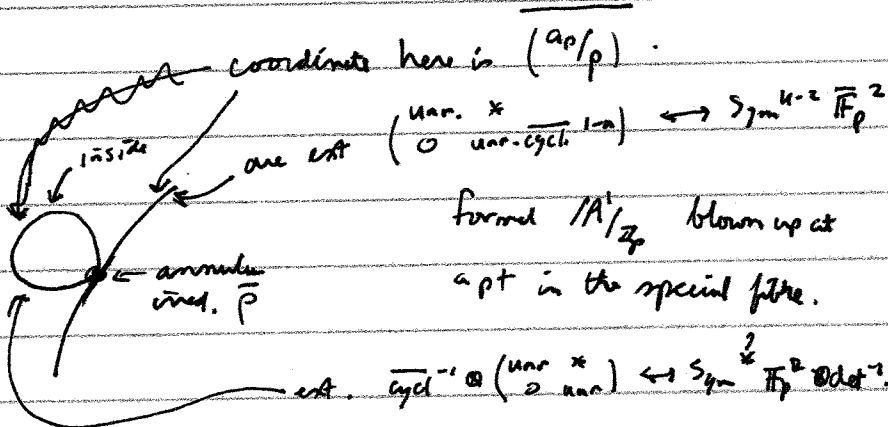 coordinate here is $\overline{(a_p/p)}$.
inside
are ext $\begin{pmatrix} \text{unr.} & * \\ 0 & \text{unr.}\overline{\text{cycl.}}^{1-n} \end{pmatrix} \longleftrightarrow \text{Sym}^{k-2} \overline{\mathbb{F}}_p^2$
formal $\mathbb{A}^1/_{\mathbb{Z}_p}$ blown up at
← annulus
irred. $\bar{\rho}$
a pt in the special fibre.
ext. $\overline{\text{cycl}}^{-1} \otimes \begin{pmatrix} \text{unr} & * \\ 0 & \text{unr} \end{pmatrix} \leftrightarrow \text{Sym}^{?} \overline{\mathbb{F}}_p^2 \otimes \det^{-1}$.